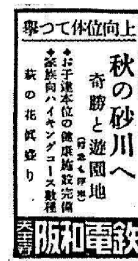 擧つて体位向上
秋の砂川へ
奇勝と遊園地
◆お子達本位の健康施設完備
◆家族向ハイキングコース数種
萩の花眞盛り
天王寺
阪和電鉄